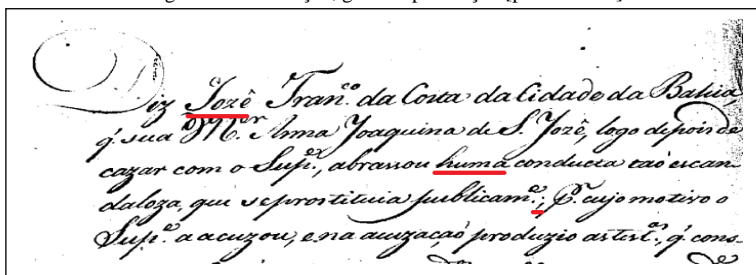 Diz Jozê Fran.co da Costa da Cidade da Bahia,
q̃ sua M.er Anna Joaquina de S. Jozê, logo depois de
cazar com o Sup.e, abrassou huma conducta taõ escan-
daloza, que se prostituia publicam.e; P.r cujo motivo o
Sup.e a acuzou, e na acuzaçaõ produzio as test.as, q̃ cons-